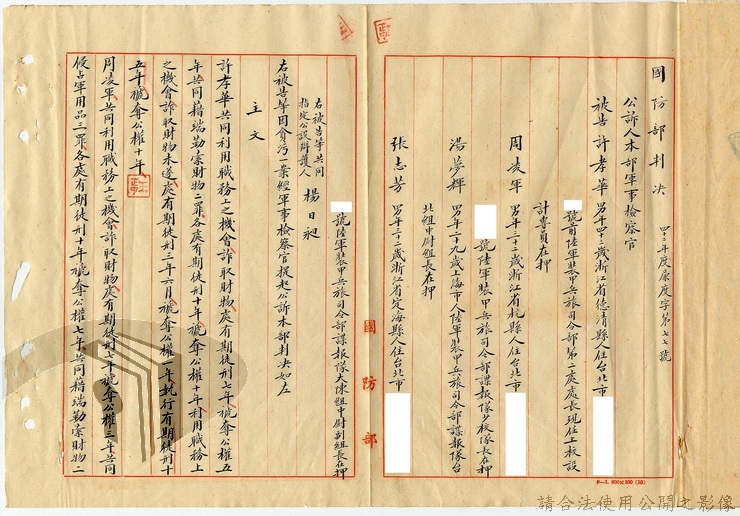 國防部判決　四十三年度廉度字第七七號
公訴人本部軍事檢察官
被告許孝華　男年四十三歲浙江省德清縣人住台北市
號前陸軍裝甲兵旅司令部第二處處長現任上校設
計專員在押
周凌軍　男年三十二歲浙江省杭縣人住台北市
號陸軍裝甲兵旅司令部諜報隊少校隊長在押
湯夢輝　男年二十九歲上海市人陸軍裝甲兵旅司令部諜報隊台
北組中尉組長在押
張志芳　男年三十二歲浙江省定海縣人住台北市
國防部
號陸軍裝甲兵旅司令部諜報隊大陳組中尉副組長在押
右被告等共同
指定公設辯護人　楊日昶
右被告等因貪污一案經軍事檢察官提起公訴本部判決如左
主文
許孝華共同利用職務上之機會詐取財物處有期徒刑七年褫奪公權五
年共同藉端勒索財物二罪各處有期徒刑十年褫奪公權十年利用職務上
之機會詐取財物未遂處有期徒刑三年六月褫奪公權一年執行有期徒刑十
五年褫奪公權十年
周凌軍共同利用職務上之機會詐取財物處有期徒刑七年褫奪公權三年共同
侵占軍用品三罪各處有期徒刑十年褫奪公權七年共同藉端勒索財物二
P-3. 600×100 (30)
請合法使用公開之影像